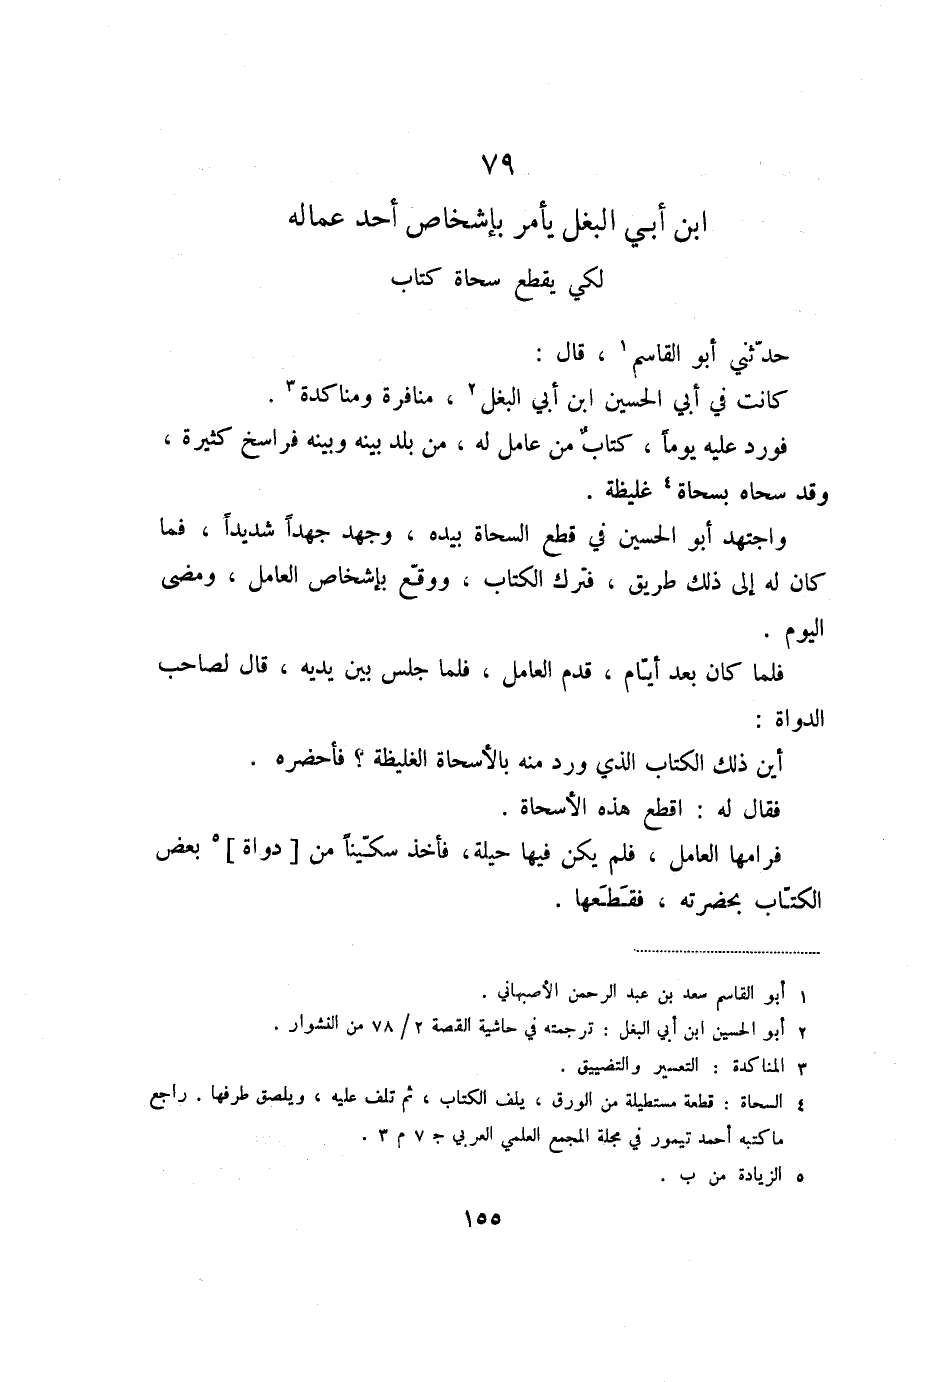 ٧٩
ابن أبـي البغل يأمر بإشخاص أحد عماله
لكي يقطع سحاة كتاب
حدّثني أبو القاسم ١ ، قال :
كانت في أبي الحسين ابن أبي البغل ٢ ، منافرة ومناكدة ٣ .
فورد عليه يوماً ، كتابٌ من عامل له ، من بلد بينه وبينه فراسخ كثيرة ،
وقد سحاه بسحاة ٤ غليظة .
واجتهد أبو الحسين في قطع السحاة بيده ، وجهد جهداً شديداً ، فما
كان له إلى ذلك طريق ، فترك الكتاب ، ووقّع بإشخاص العامل ، ومضى
اليوم .
فلما كان بعد أيّام ، قدم العامل ، فلما جلس بين يديه ، قال لصاحب
الدواة :
أين ذلك الكتاب الذي ورد منه بالأسحاة الغليظة ؟ فأحضره .
فقال له : اقطع هذه الأسحاة .
فرامها العامل ، فلم يكن فيها حيلة، فأخذ سكّيناً من [ دواة ] ٥ بعض
الكتّاب بحضرته ، فقَطَعها .
١ أبو القاسم سعد بن عبد الرحمن الأصبهاني .
٢ أبو الحسين ابن أبي البغل : ترجمته في حاشية القصة ٢ / ٧٨ من النشوار .
٣ المناكدة : التعسير والتضييق .
٤ السحاة : قطعة مستطيلة من الورق ، يلف الكتاب ، ثم تلف عليه ، ويلصق طرفها . راجع
ما كتبه أحمد تيمور في مجلة المجمع العلمي العربي ج ٧ م ٣ .
٥ الزيادة من ب .
١٥٥